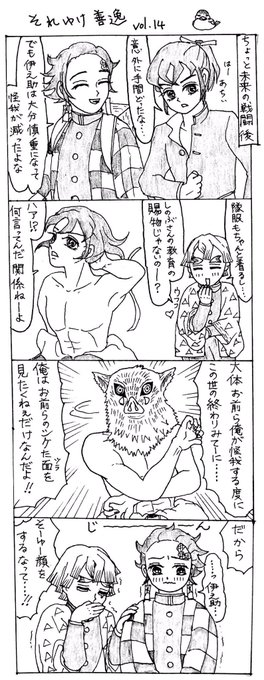 それゆけ善逸 vol.14
ちょっと未来の戦闘後
はー
あ…
意外に手間どったな…
でも伊之助は大分慎重になって
怪我が減ったよな
隊服もちゃんと着るし…
しのぶさんの教育の
賜物じゃないのー？
ウフフ♡
ハア!?
何言ってんだ関係ねーよ
大体お前ら俺が怪我する度に
この世の終わりみてーに…
俺はお前らのシケた面を
ツラ
見たくねぇだけなんだよ!!
じーん
だから
……っ伊之助…
そーゆー顔を
するなって…!!